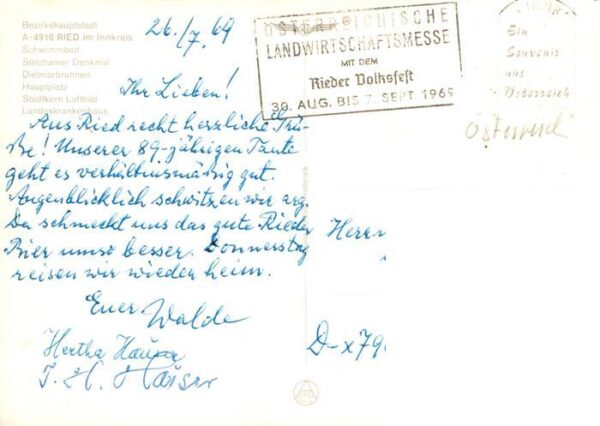 Bezirkshauptstadt
A-4910 RIED im Innkreis
Schwimmbad
Stelzhamer Denkmal
Dietmarbrunnen
Hauptplatz
Stadtkern Luftbild
Landeskrankenhaus
26./7. 69
ÖSTERREICHISCHE
LANDWIRTSCHAFTSMESSE
MIT DEM
Rieder Volksfest
30. AUG. BIS 7. SEPT. 1969
Ein
Souvenir
aus
Österreich
Österreich
Ihr Lieben!
Aus Ried recht herzliche Grü-
ße! Unserer 89-jährigen Tante
geht es verhältnismäßig gut.
Augenblicklich schwitzen wir arg.
Da schmeckt uns das gute Rieder
Bier umso besser. Donnerstag
reisen wir wieder heim.
Euer Walde
Hertha Hauser
J. H. Hauser
Herrn
D-x79